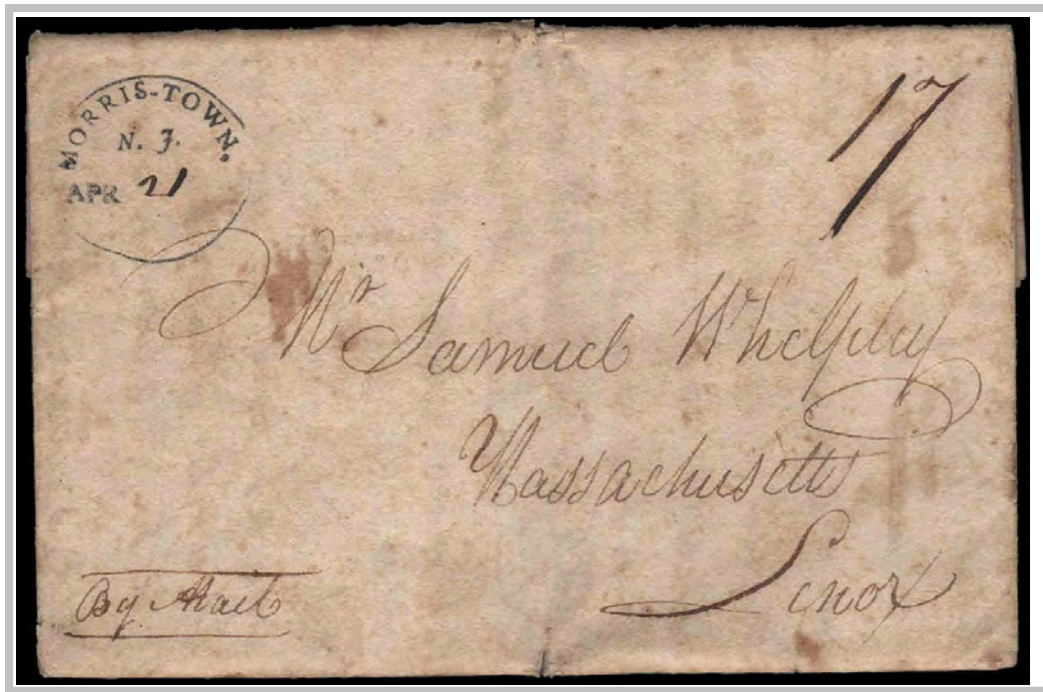 MORRIS-TOWN.
N. J.
APR 21
17
Mr Samuel Whelpley
Massachusetts
Lenox
By Mail